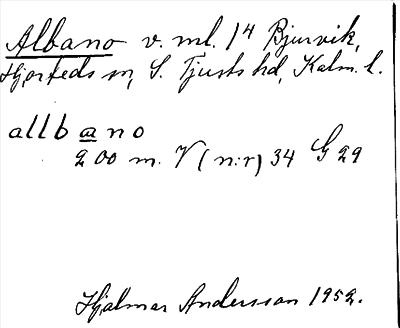 Albano v. ml. 14 Bjurvik,
Hjorteds sn, S. Tjusts hd, Kalm. l.
allbano
200 m. V (n:r) 34 G 29
Hjalmar Andersson 1952.